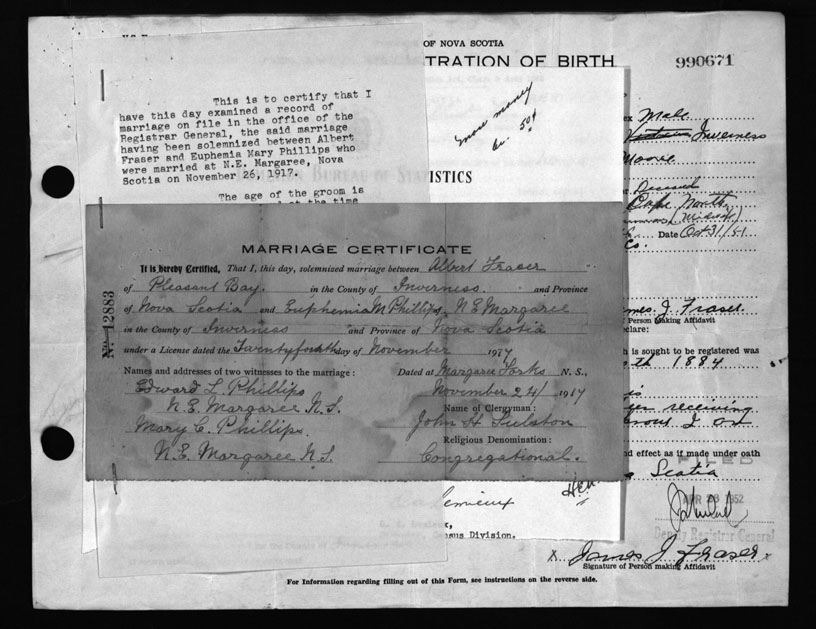 OF NOVA SCOTIA
TRATION OF BIRTH
990671
This is to certify that I
have this day examined a record of
marriage on file in the office of the
Registrar General, the said marriage
having been solemnized between Albert
Fraser and Euphemia Mary Phillips who
were married at N.E. Margaree, Nova
Scotia on November 26, 1917.
The age of the groom is
at the time
more money
50¢
BUREAU OF STATISTICS
MARRIAGE CERTIFICATE
No. 12883
It is hereby Certified, That I, this day, solemnized marriage between Albert Fraser
of Pleasant Bay. in the County of Inverness. and Province
of Nova Scotia and Euphemia M Phillips, N E Margaree
in the County of Inverness and Province of Nova Scotia
under a License dated the Twentyfourth day of November 1917
Names and addresses of two witnesses to the marriage:
Edward L Phillips
N. E. Margaree N.S.
Mary C. Phillips.
N. E. Margaree N.S.
Dated at Margaree Forks N. S.,
November 24 1917
Name of Clergyman:
John H
Religious Denomination:
Congregational.
Male
Inverness
Moore
Deceased
Cape North
Date Oct 31/51
Co.
James J. Fraser
Person Making Affidavit
declare:
is sought to be registered was
1884
receiving
and effect as if made under oath
Scotia
FILED
APR 23 1952
Deputy Registrar General
Census Division.
X James J Fraser x
Signature of Person making Affidavit
For Information regarding filling out of this Form, see instructions on the reverse side.